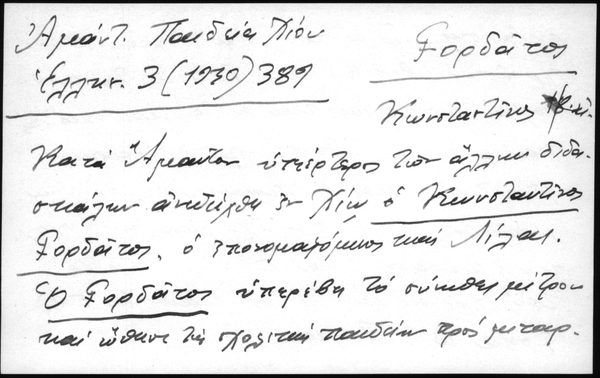 Ἀμάντ. Παιδεία Χίου
Γορδᾶτος
Ἑλλην. 3 (1930) 389
Κωνσταντῖνος
Κατὰ Ἄμαντον ὑπέρτερος τῶν ἄλλων διδα-
σκάλων ἀνεδείχθη ἐν Χίῳ ὁ Κωνσταντῖνος
Γορδᾶτος, ὁ ἐπονομαζόμενος καὶ
Ὁ Γορδᾶτος ὑπερέβη τὸ σύνηθες μέτρον
καὶ ὤθησε τὴν σχολικὴ παιδείαν πρὸς μεταρ.